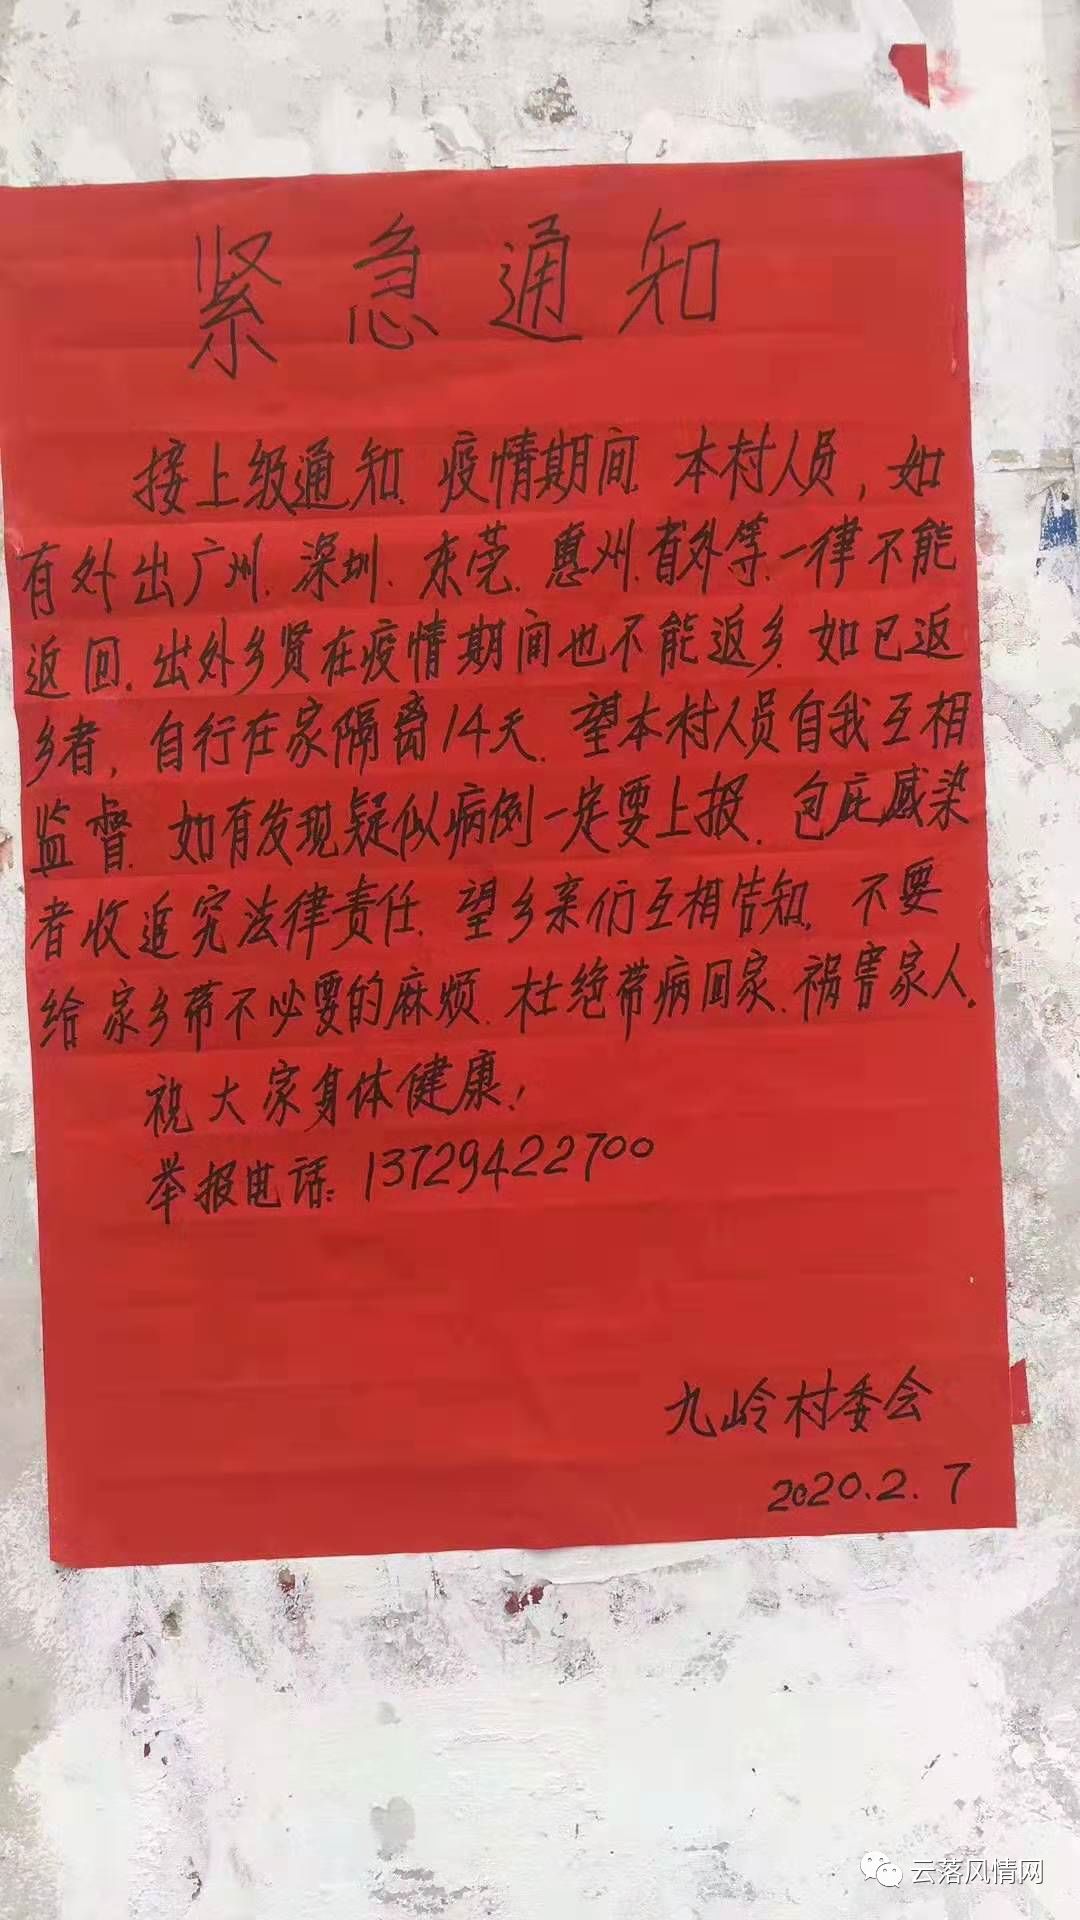 紧急通知
接上级通知.疫情期间.本村人员,如
有外出广州.深圳.东莞.惠州.省外等.一律不能
返回.出外乡贤在疫情期间也不能返乡.如已返
乡者,自行在家隔离14天.望本村人员自我互相
监督.如有发现疑似病例一定要上报.包庇感染
者收追究法律责任.望乡亲们互相告知.不要
给家乡带不必要的麻烦.杜绝带病回家.祸害家人.
祝大家身体健康!
举报电话:13729422700
九岭村委会
2020.2.7
云落风情网